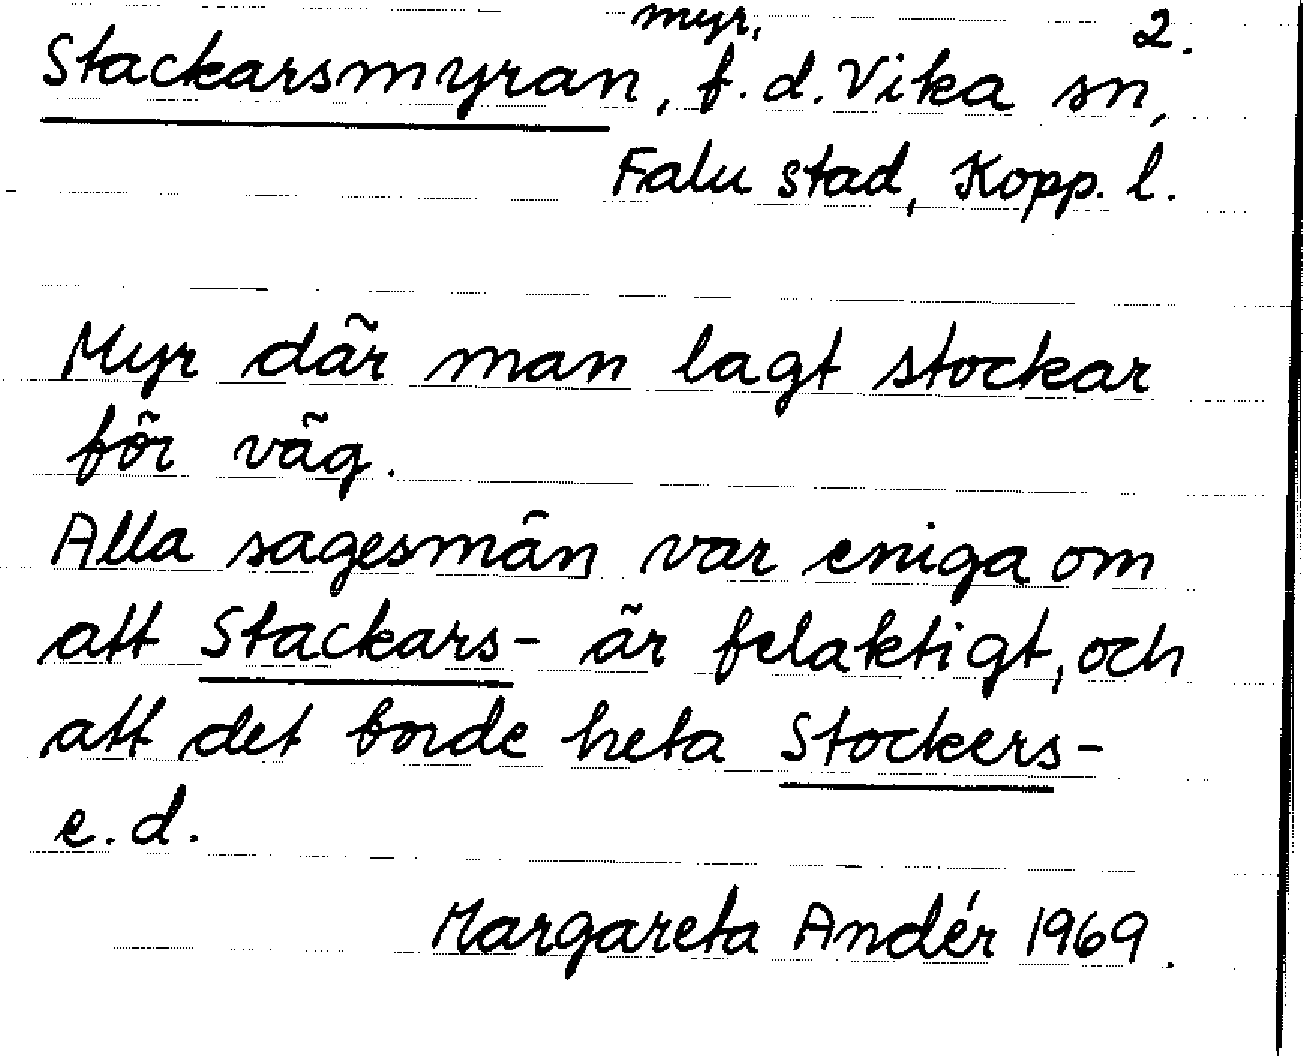 myr, 2.
Stackarsmyran, f.d. Vika sn,
Falu stad, Kopp. l.
Myr där man lagt stockar
för väg.
Alla sagesmän var eniga om
att Stackars- är felaktigt, och
att det borde heta Stockers-
e.d.
Margareta Andér 1969.